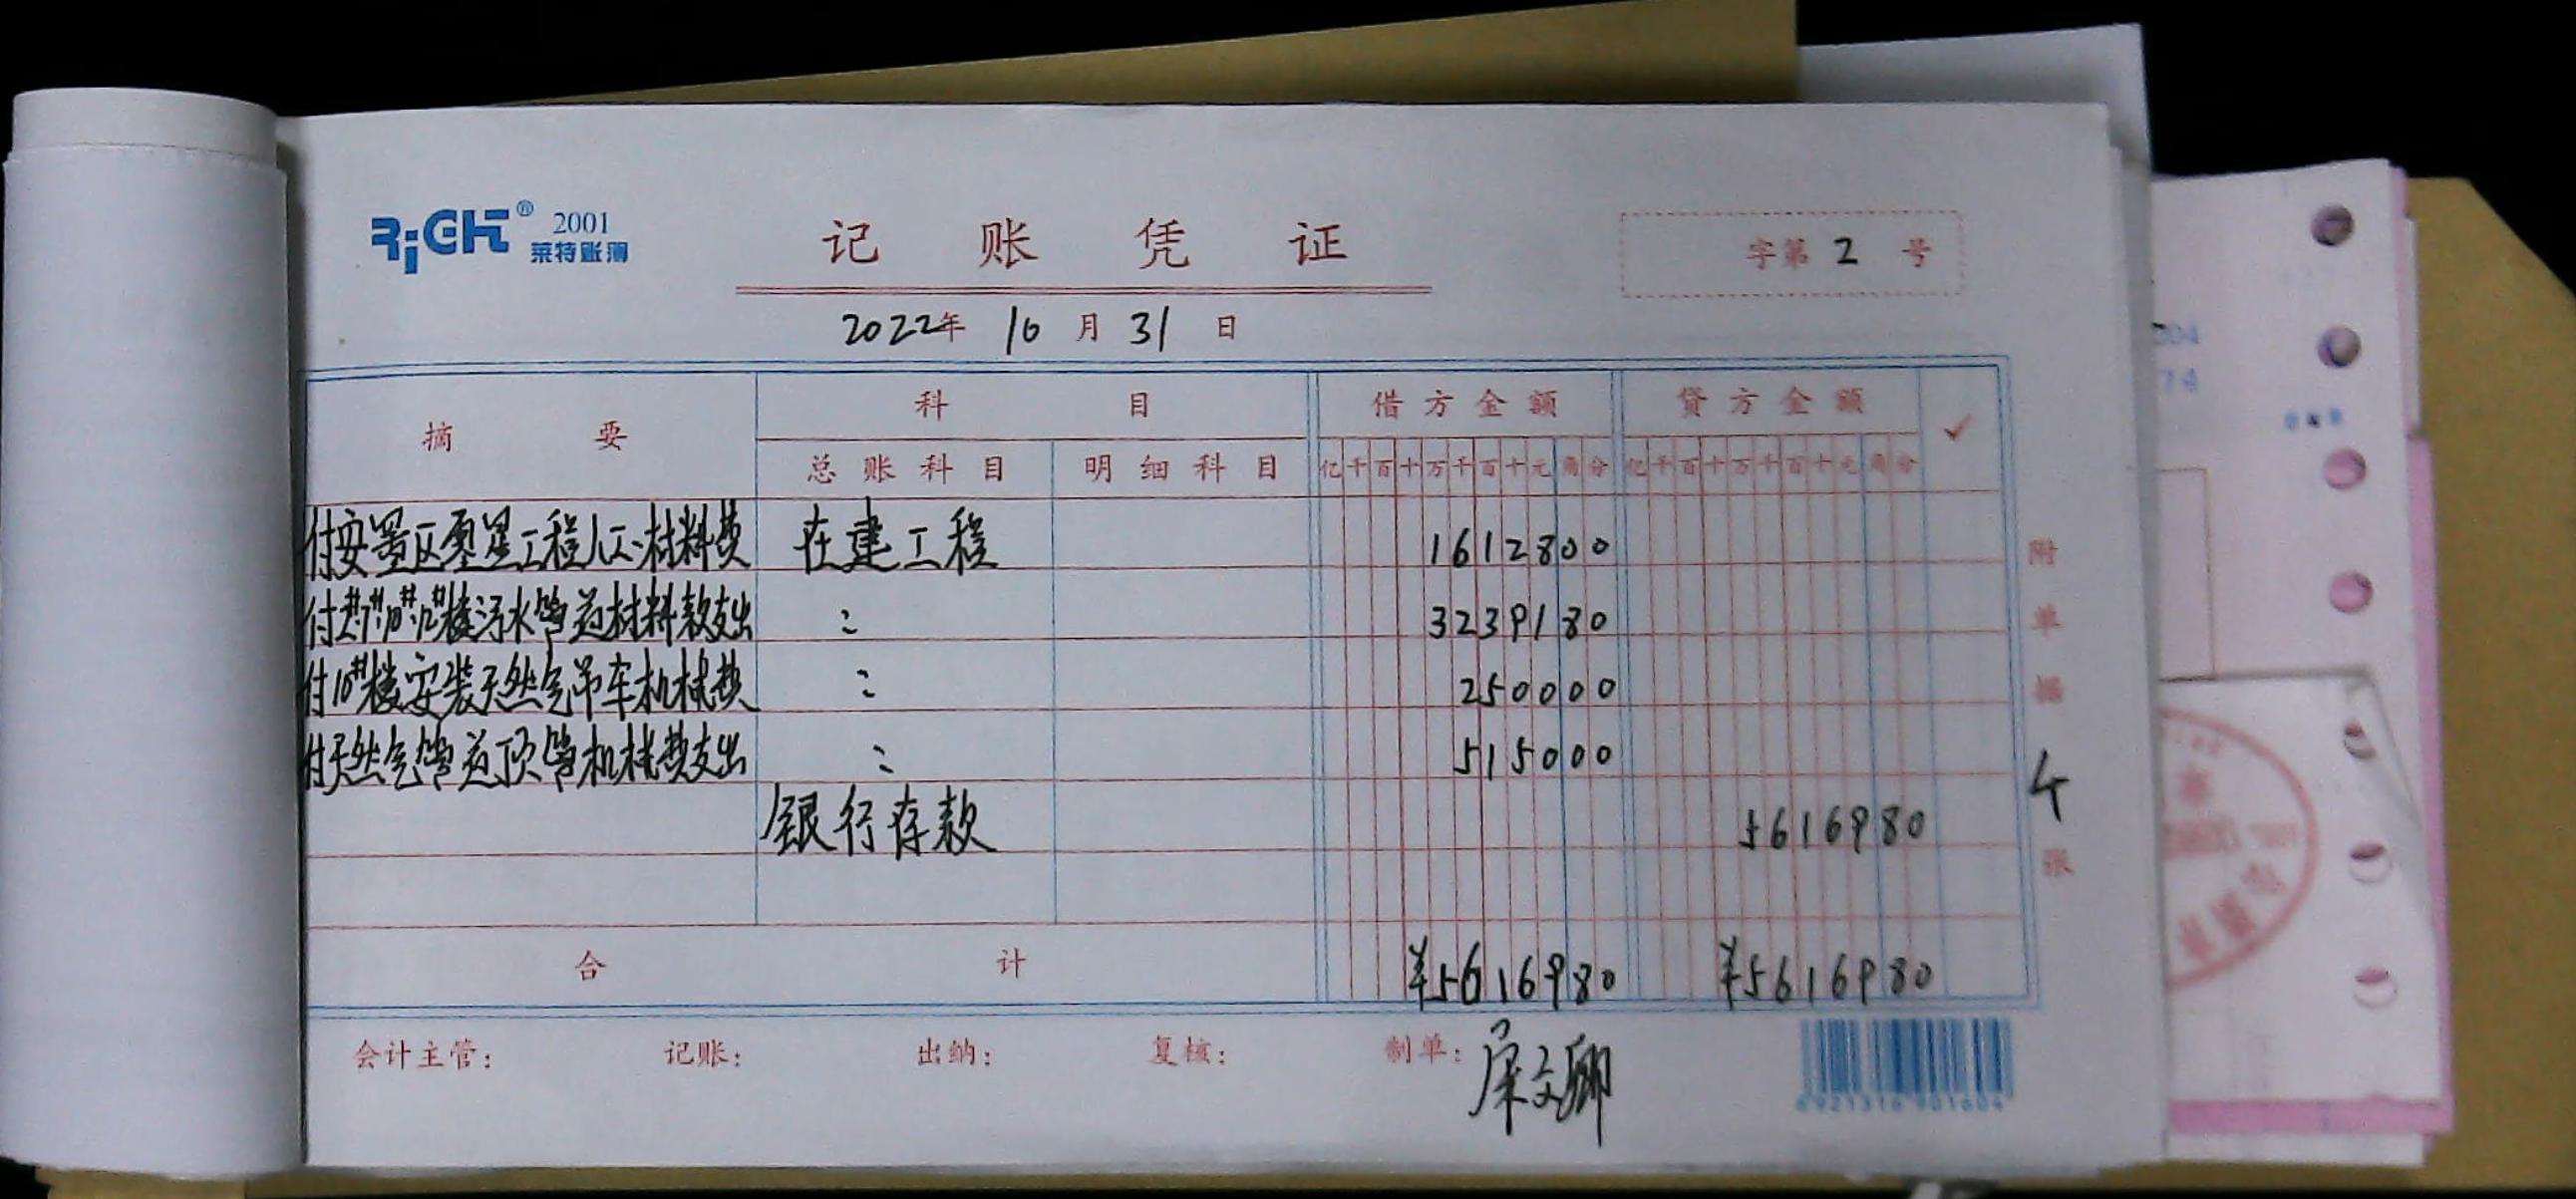 RiGHT® 2001
莱特账簿
记账凭证
字第 2 号
2022年 10月 31日
摘要 科目 借方金额 贷方金额 ✓
总账科目 明细科目 亿千百十万千百十元角分 亿千百十万千百十元角分
付安置区零星工程人工、材料费 在建工程 1612800
付 7#、10#、12#楼污水管道材料款支出 〃 3239180
付10#楼安装天然气吊车机械费 〃 250000
付天然气管道顶管机械费支出 〃 515000
银行存款 5616980
合计 ¥5616980 ¥5616980
附单据 4 张
会计主管: 记账: 出纳: 复核: 制单: 文卿
6921316 901604